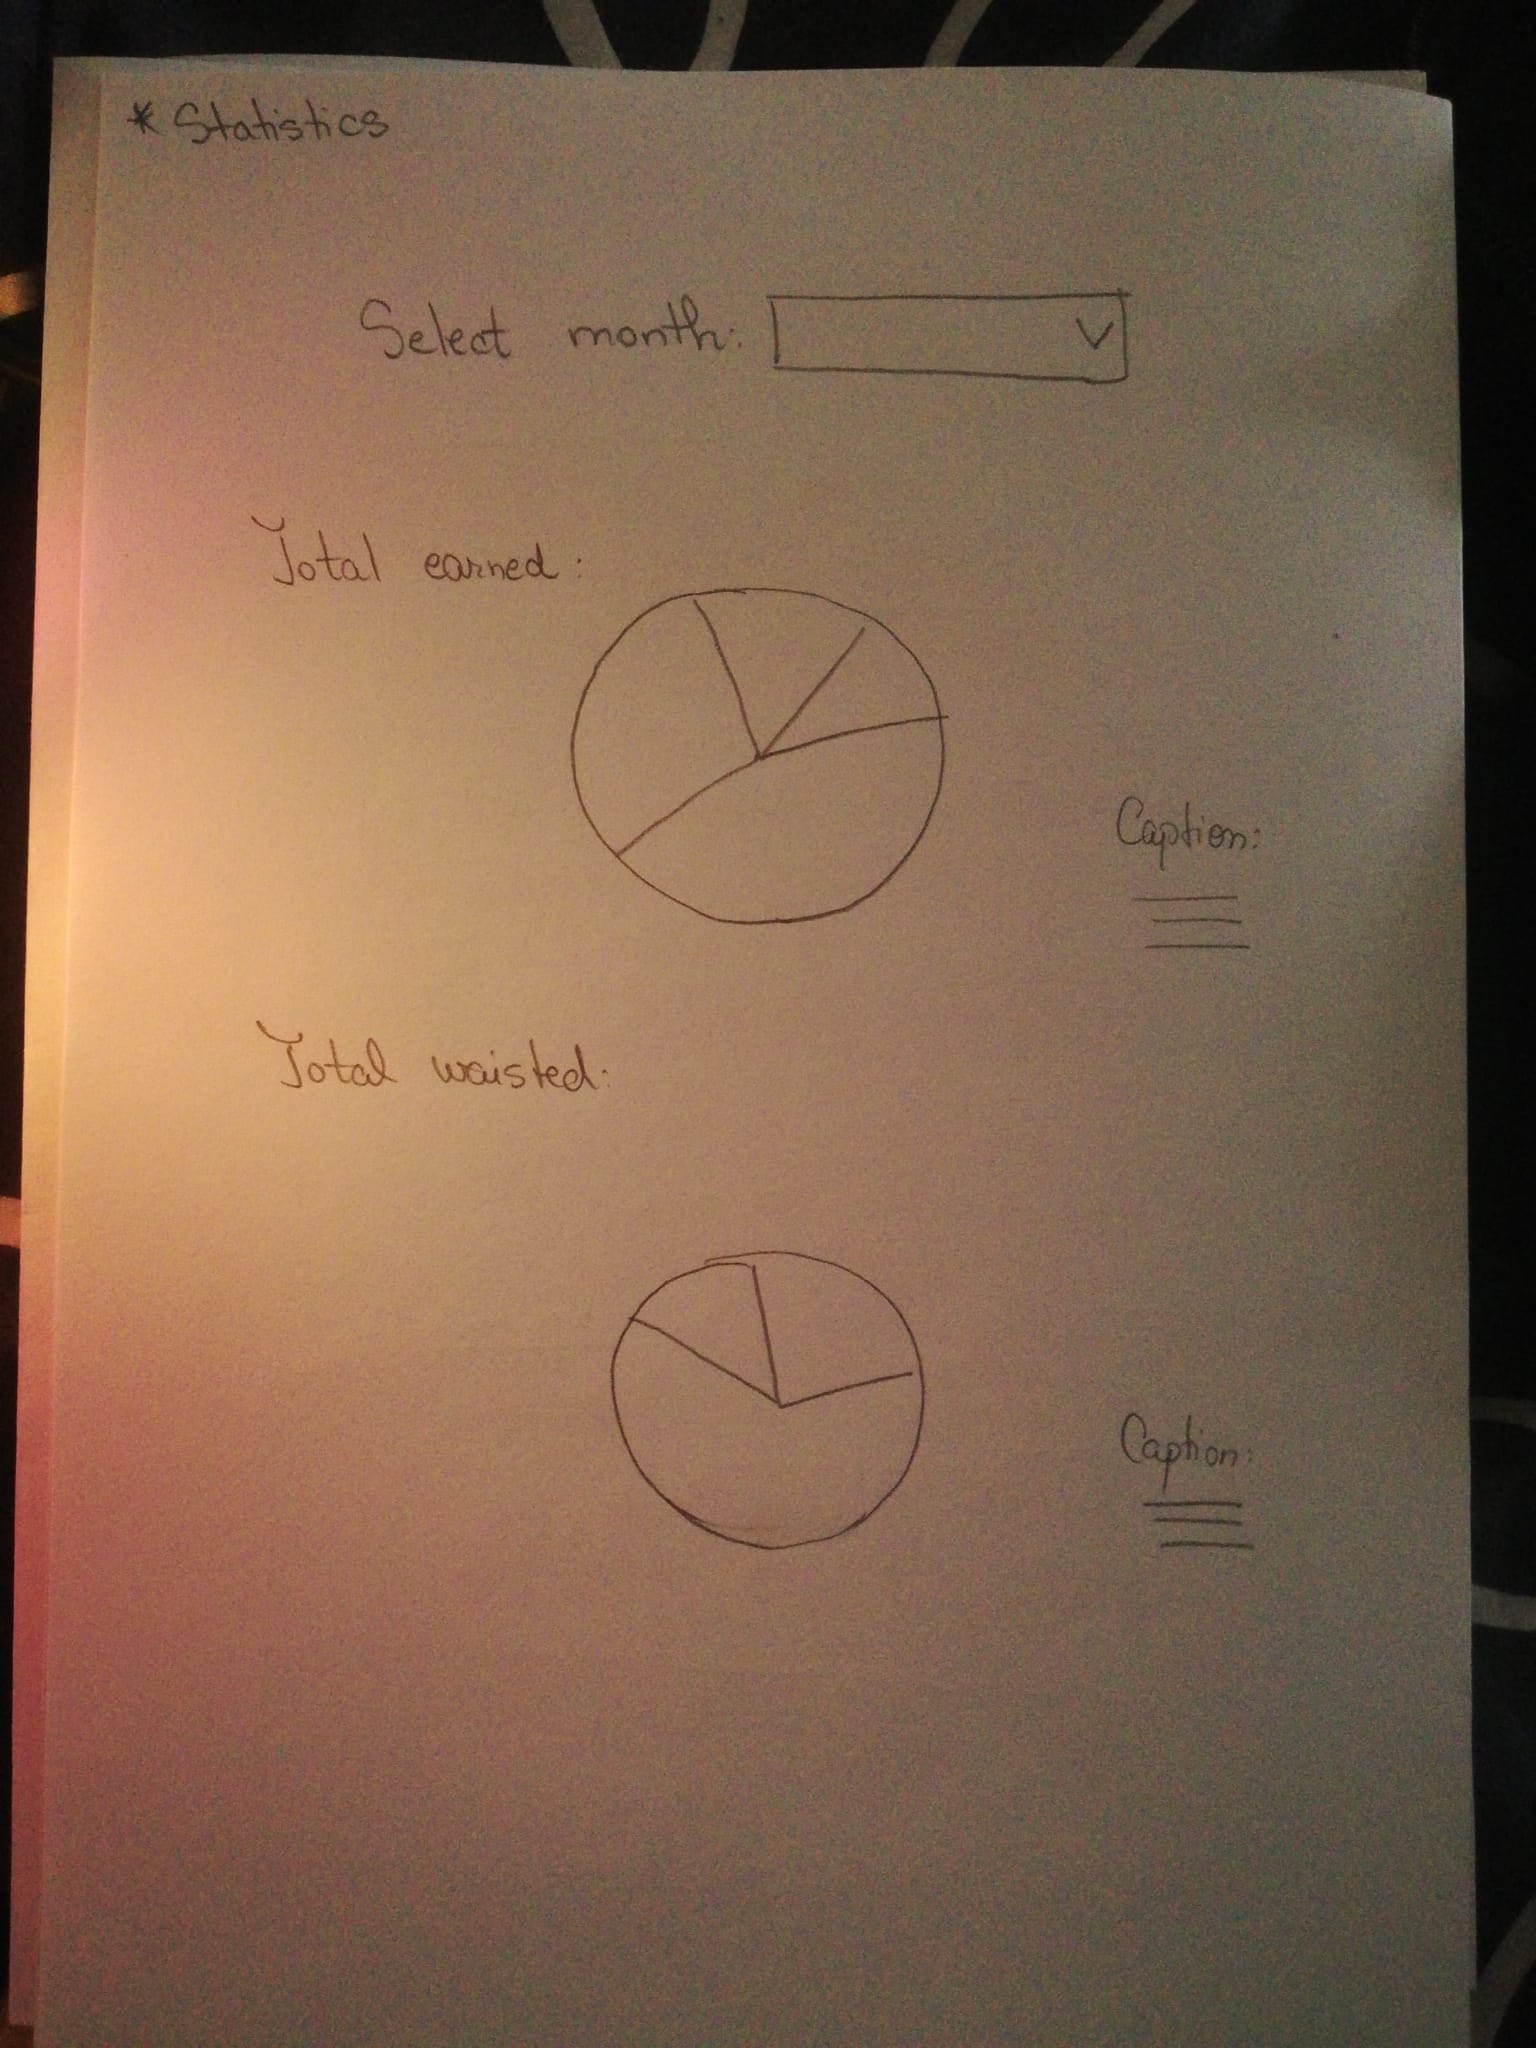 * Statistics
Select month:
Total earned:
Caption:
Total waisted:
Caption: